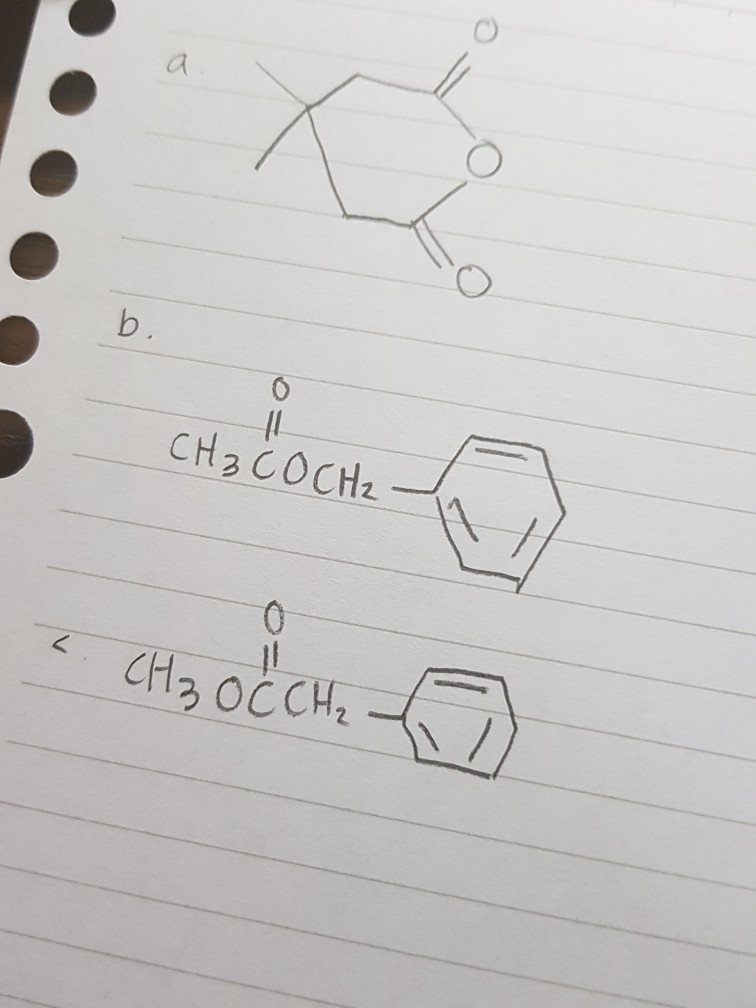 a.
O
O
O
b.
O
||
CH₃COCH₂
c.
O
||
CH₃OCCH₂